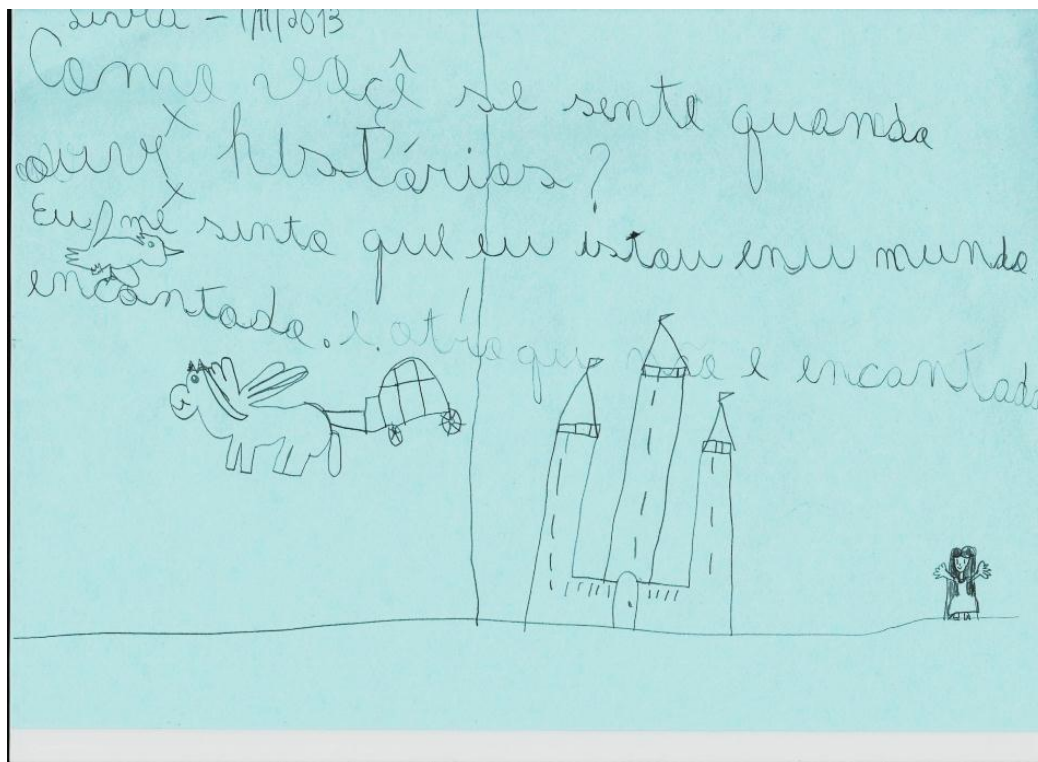 1/11/2013
Como você se sente quando
ouve histórias?
Eu me sinto que eu istou enu mundo
encantado. não e encantado